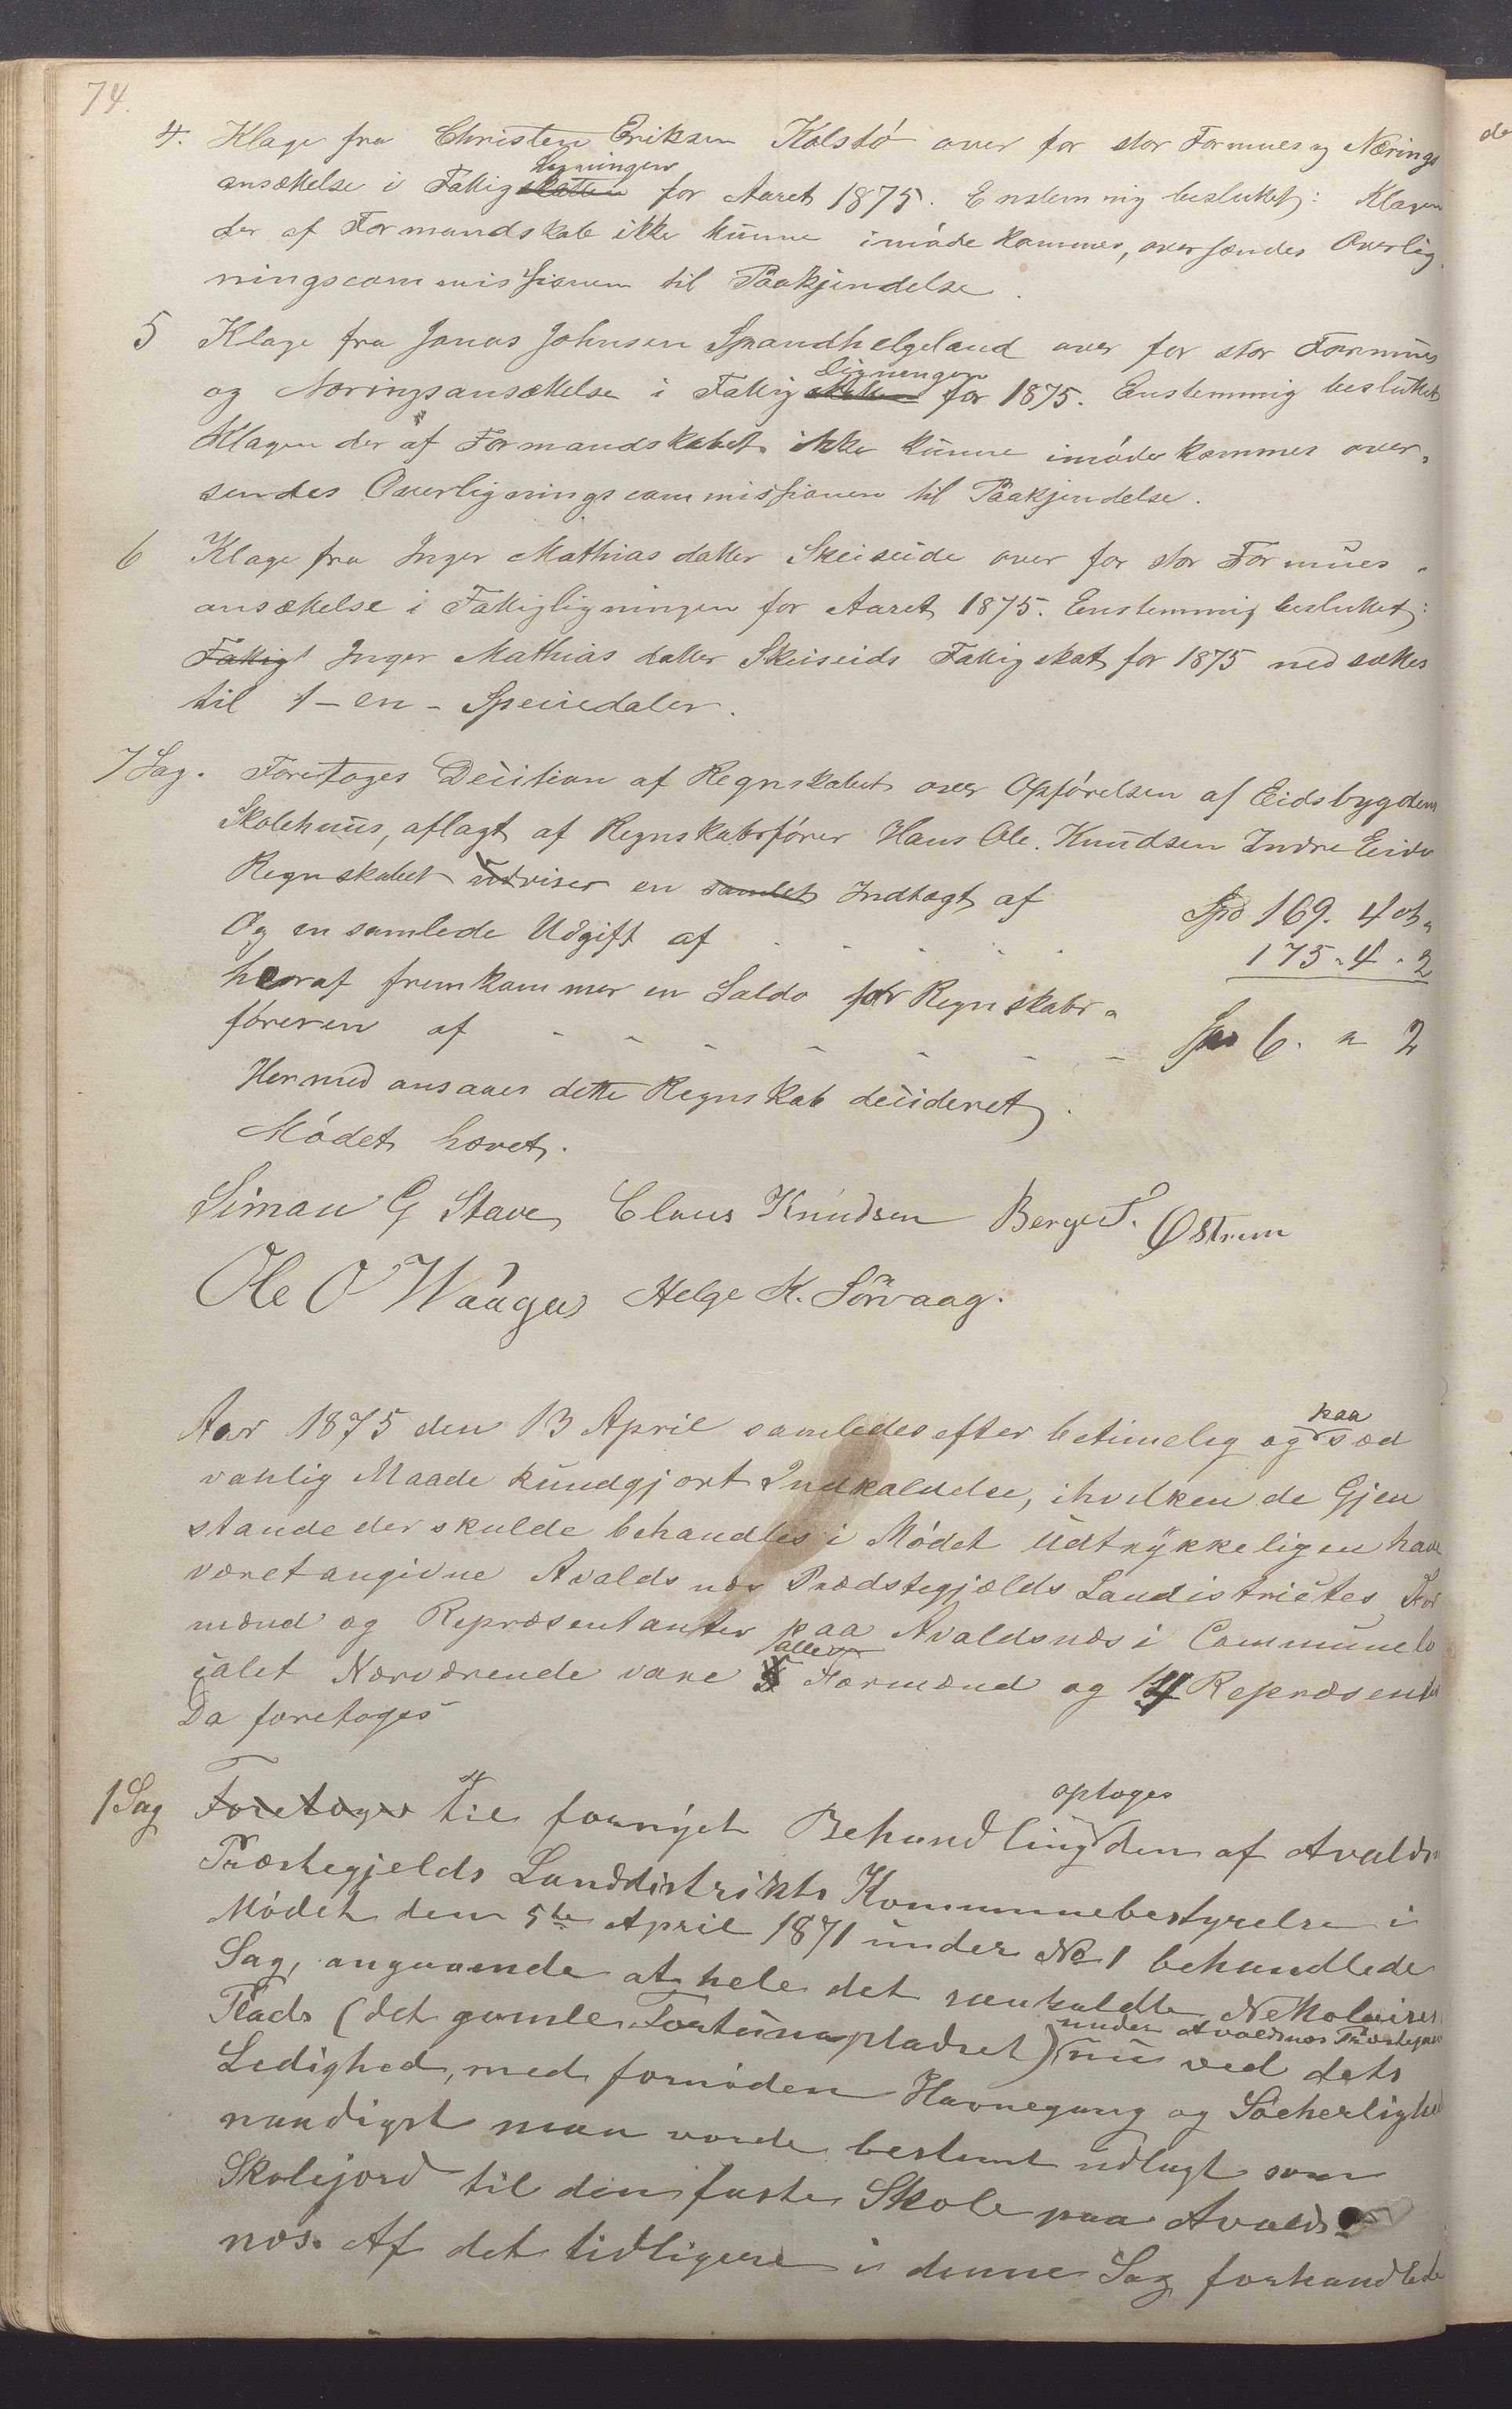 74.
4. Klage fra Christen Eriksen Kolstó over for stor Formues og Nærings
ansættelse i Fattigskatten Ligningen for Aaret 1875. Enstemmig besluttet: Klagen
der af Formandskab ikke kunne imóde kommes, oversendes Overlig
ningscommissionen til Paakjendelse.
5 Klage fra Jonas Johnsen Spandhelgeland over for stor Formues
og Næringsansættelse i Fattigskatten Ligningen for 1875. Enstemmig besluttet
Klagen der af Formandskabet ikke kunne imóde kommes over„
sendes Overligningscommissionen til Paakjendelse.
6 Klage fra Inger Mathiasdatter Skeiseide over for stor Formues„
ansættelse i Fattigligningen for Aaret 1875. Enstemmig besluttet:
Fattigs Inger Mathiasdatter Skeiseids Fattigskat for 1875 nedsættes
til 1 – en – Speciedaler.
7 Sag. Foretoges Decition af Regnskabet over Opfórelsen af Eidsbygdens
Skolehuus, aflagt af Regnskabsfórer Hans Ole. Knudsen Indre Eide
Regnskabet udviser en samlet Indtægt af Spd 169. 4 ort„
Og en samlede Udgift af 175 „ 4 „ 2
heraf fremkommer en Saldo for Regnskabs„
fóreren af Spd 6. „ 2
Hermed ansaaes dette Regnskab decideret.
Módet hævet.
Simon G Stave, Claus Knudsen Berge S. Østrem
Ole O Waage Helge K. Sörvaag.
Aar 1875 den 13 April samledes efter betimelig og paa sæd
vanlig Maade kundgjort Indkaldelse, i hvilken de Gjen
stande der skulde behandles i Módet udtrykkeligen have
været angivne Avaldsnæs Prædstegjælds Landistrictes For
mænd og Repræsentanter paa Avaldsnæs i Communelo
calet Nærværende vare 5 alle Formænd og 14 Repræsentan
Da foretoges
1 Sag Foretoges Til fornyet Behandling optoges den af Avalds
Præstegjelds Landdistrikts Kommunebestyrelse i
Módet den 5te April 1871 under No 1 behandlede
Sag, angaaende at hele det saakaldte Nekolaises
Plads (det gamle Fortunapladset) under Avaldsnæs Præstegaard nu ved dets
Ledighed, med fornóden Havnegang og Sóeherlighed
naadigst maa vorde bestemt udlagt som
Skolejord til den faste Skole paa Avalds
næs. Af det tidligere i denne Sag forhandlede
de